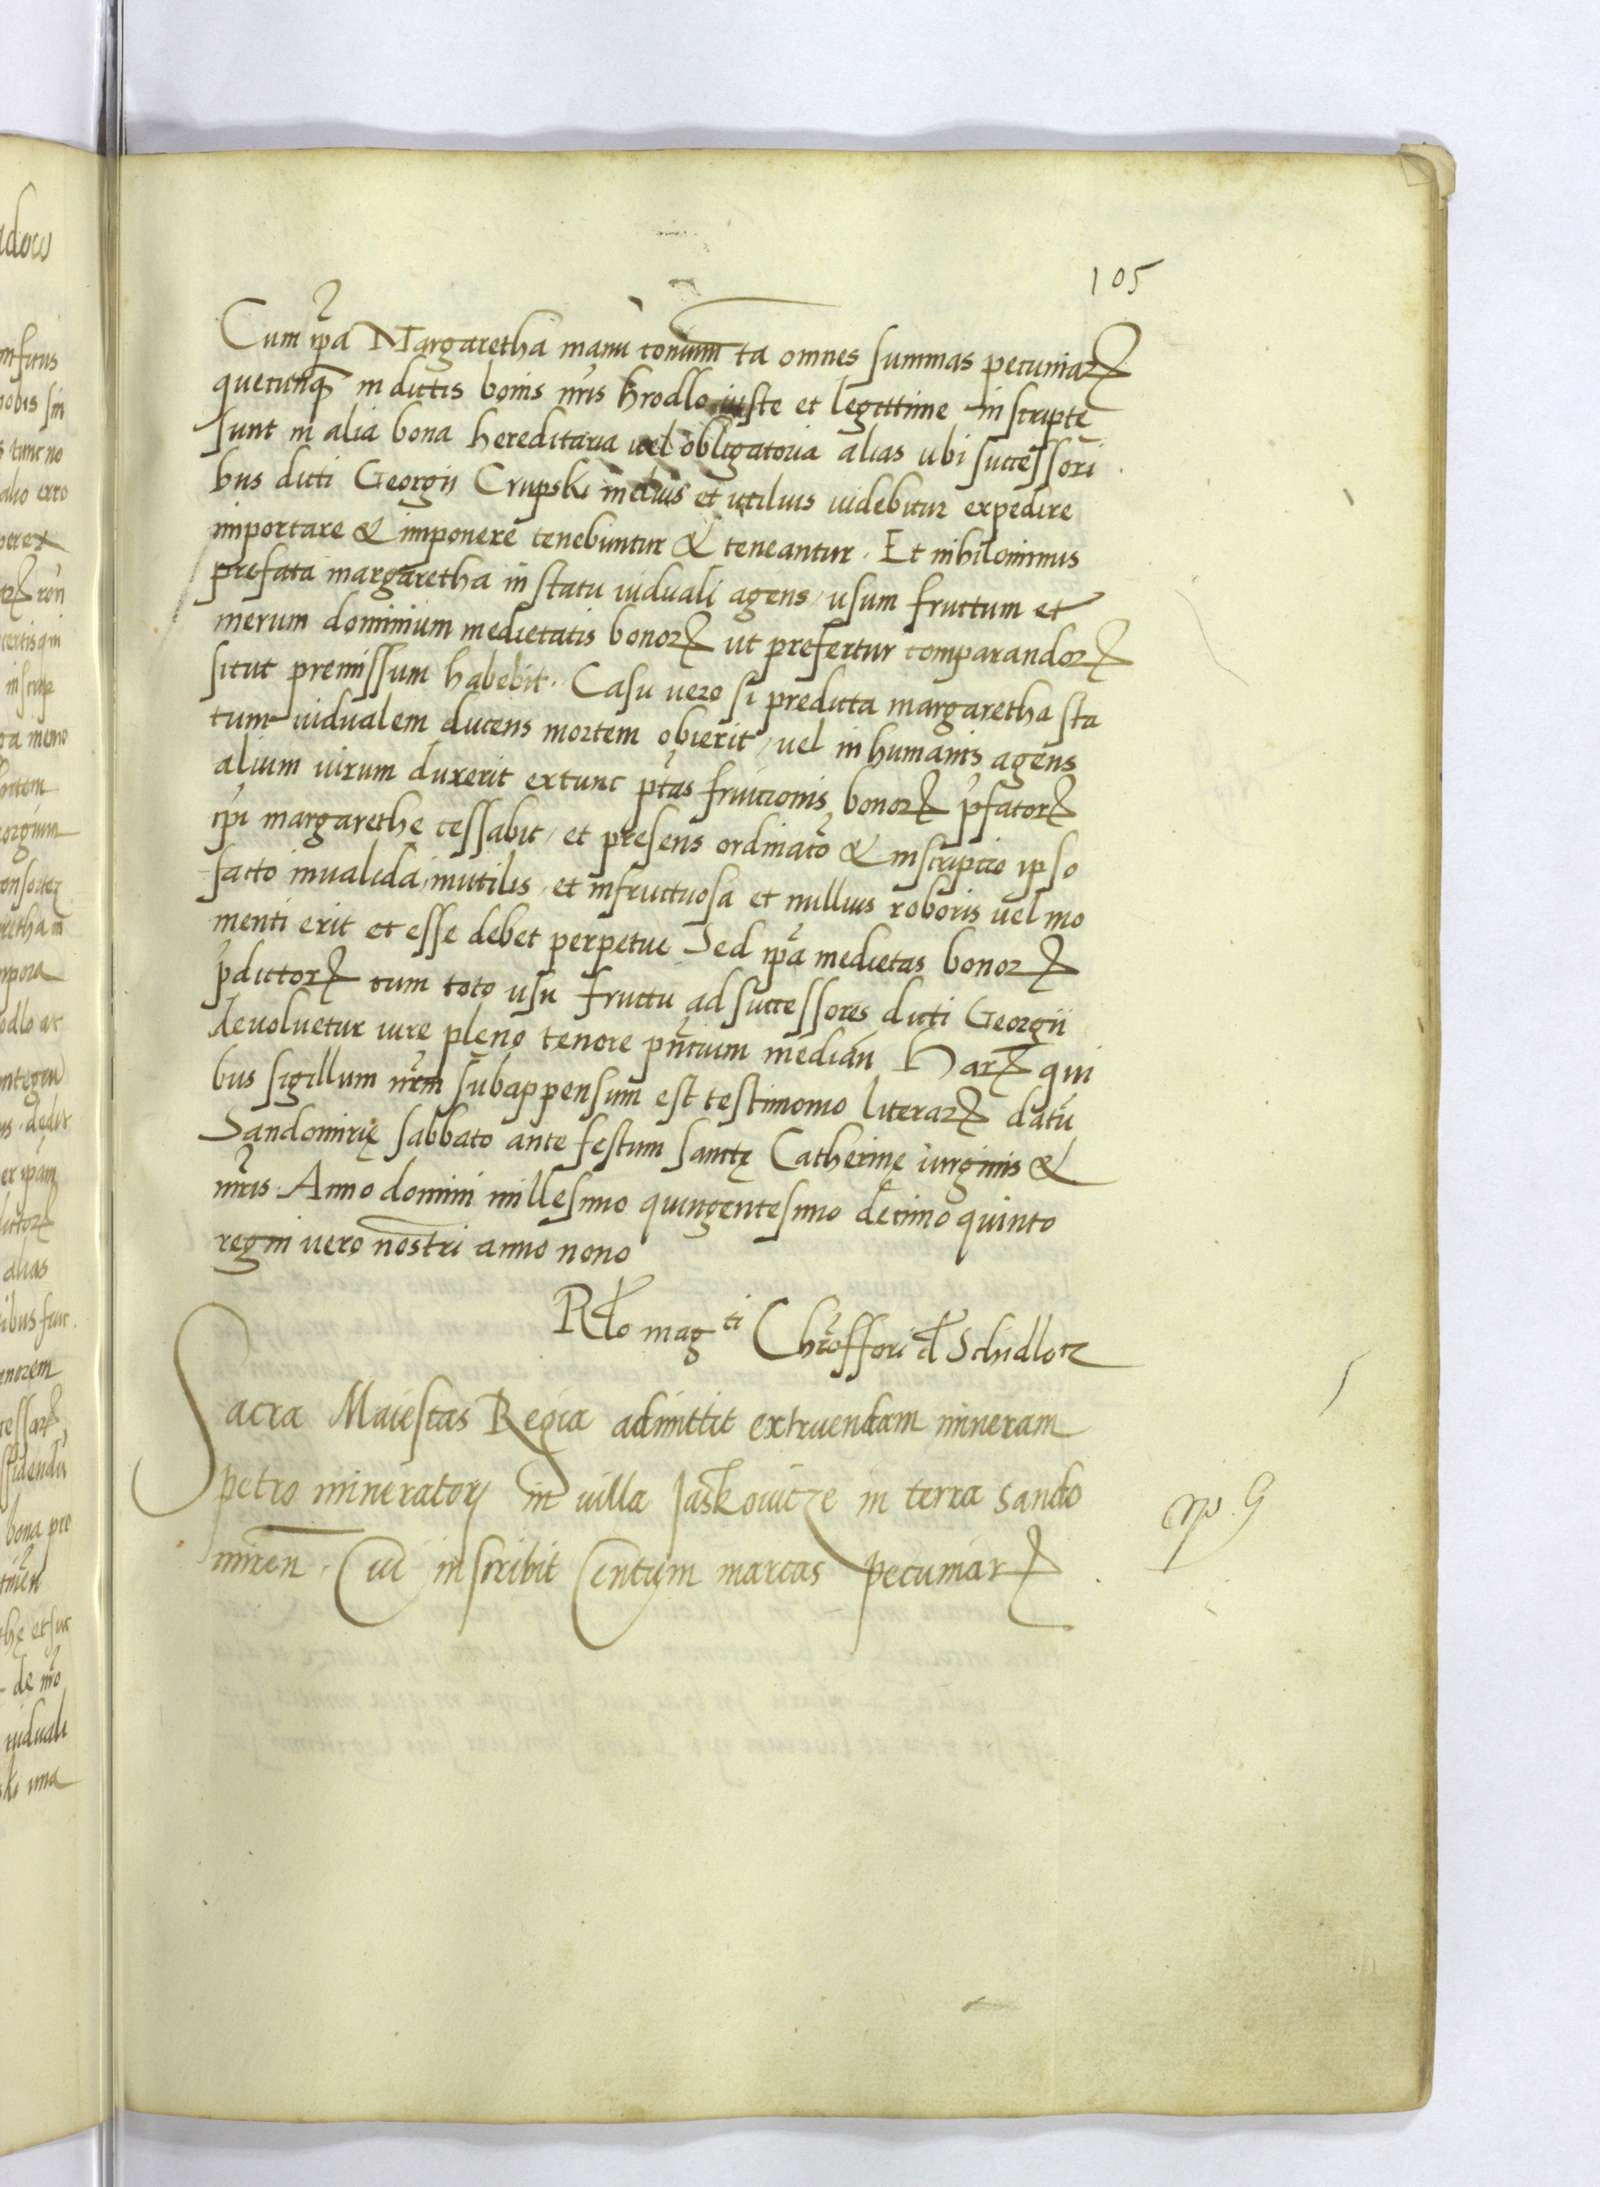 105
Cum ipa Margaretha manu coniuncta omnes summas pecuniarꝝ
quecunqꝫ in dictis bonis nris hrodlo iuste et legittime inscripte
sunt in alia bona hereditaria uel obligatoria alias ubi successori
bus dicti Georgij Crupski melius et utilius uidebitur expedire
importare & imponere tenebuntur & teneantur. Et nihilominus
prefata margaretha in statu uiduali agens, usum fructum et
merum dominium medietatis bonorꝝ ut prefertur comparandorꝝ
sicut premissum habebit. Casu vero si predicta margaretha sta
tum uidualem ducens mortem obierit, vel in humanis agens
alium uirum duxerit extunc ptas fruicionis bonorꝝ pfatorꝝ
ipi margarethę cessabit, et presens ordinatio & inscripcio ipso
facto inualida, inutilis, et infructuosa et nullius roboris uel mo
menti erit et esse debet perpetue Sed ipa medietas bonorꝝ
pdictorꝝ cum toto usu fructu ad successores dicti Georgii
deuoluetur iure pleno tenore pntium median Harꝝ qui
bus sigillum nrm subappensum est testimonio literarꝝ datu
Sandomirię sabbato ante festum sanctę Catherinę uirginis &
mris. Anno domini millesimo quingentesimo decimo quinto
regni uero nostri anno nono
Rlo magti Chroffori d Schidlotz
Sacra Maiestas Regia admittit extruendam mineram
petro mineratorj in uilla Jaskouicze in terra sando
miren. Cui inscribit Centum marcas pecuniarꝝ